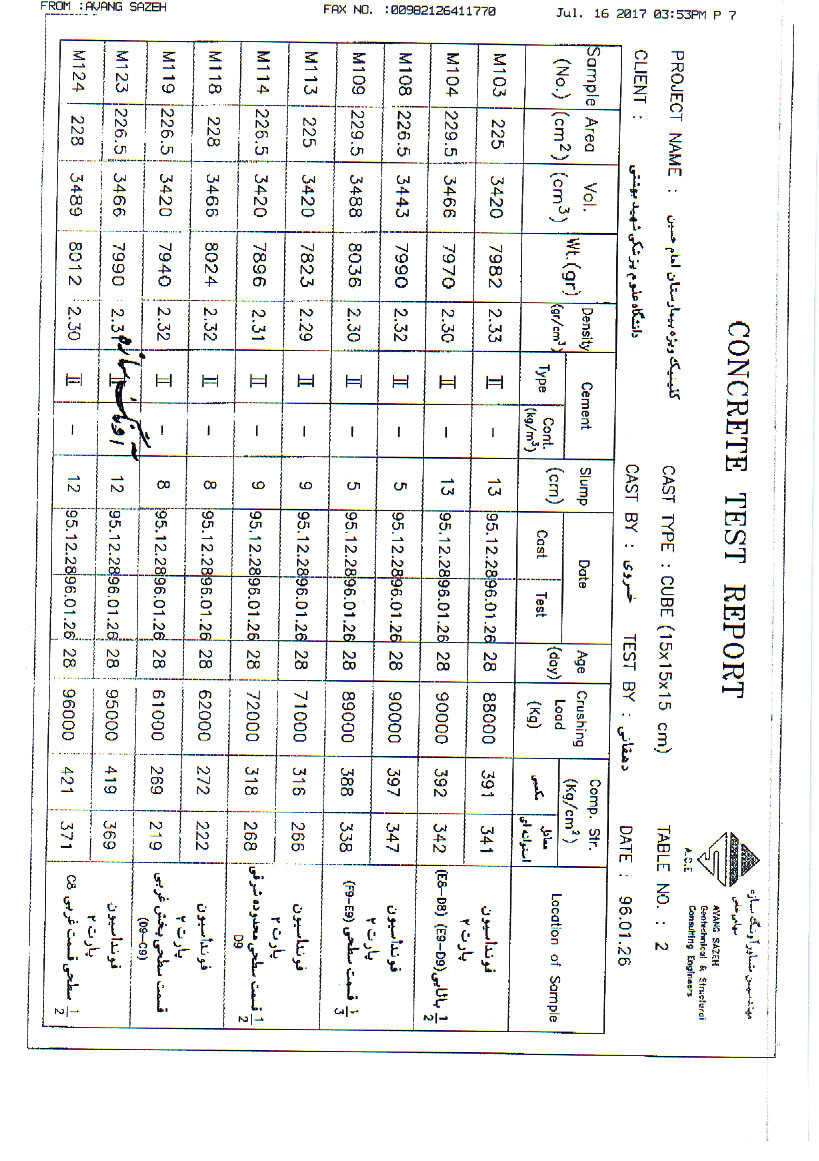 FROM :AVANG SAZEH FAX NO. :00982126411770 Jul. 16 2017 03:53PM P 7
CONCRETE TEST REPORT
مهندسین مشاور آونگ سازه
سهامی خاص
AVANG SAZEH
Geotechnical & Structural
Consulting Engineers
A.C.E
PROJECT NAME : کلینیک ویژه بیمارستان امام حسین CAST TYPE : CUBE (15x15x15 cm) TABLE NO. : 2
CLIENT : دانشگاه علوم پزشکی شهید بهشتی CAST BY : خسروی TEST BY : دهقانی DATE : 96.01.26
Sample (No.) Area (cm²) Vol. (cm³) Wt.(gr) Density (gr/cm³) Cement Type Cont. (kg/m³) Slump (cm) Date Cast Test Age (day) Crushing Load (Kg) Comp. Str. (Kg/cm²) مکعبی معادل استوانه ای Location of Sample
M103 225 3420 7982 2.33 II - 13 95.12.28 96.01.26 28 88000 391 341
M104 229.5 3466 7970 2.30 II - 13 95.12.28 96.01.26 28 90000 392 342
فونداسیون
پارت ۲
1/2 (E8-D8) (E9-D9)
M108 226.5 3443 7990 2.32 II - 5 95.12.28 96.01.26 28 90000 397 347
M109 229.5 3488 8036 2.30 II - 5 95.12.28 96.01.26 28 89000 388 338
فونداسیون
پارت ۲
1/3 قسمت سطحی (F9-E9)
M113 225 3420 7823 2.29 II - 9 95.12.28 96.01.26 28 71000 316 266
M114 226.5 3420 7896 2.31 II - 9 95.12.28 96.01.26 28 72000 318 268
فونداسیون
پارت ۲
1/2 قسمت سطحی محدوده شرقی
D9
M118 228 3466 8024 2.32 II - 8 95.12.28 96.01.26 28 62000 272 222
M119 226.5 3420 7940 2.32 II - 8 95.12.28 96.01.26 28 61000 269 219
فونداسیون
پارت ۲
قسمت سطحی بخش غربی
(D9-C9)
M123 226.5 3466 7990 2.31 II - 12 95.12.28 96.01.26 28 95000 419 369
M124 228 3489 8012 2.30 II - 12 95.12.28 96.01.26 28 96000 421 371
فونداسیون
پارت ۲
1/2 سطحی قسمت غربی C8
آونگ سازه